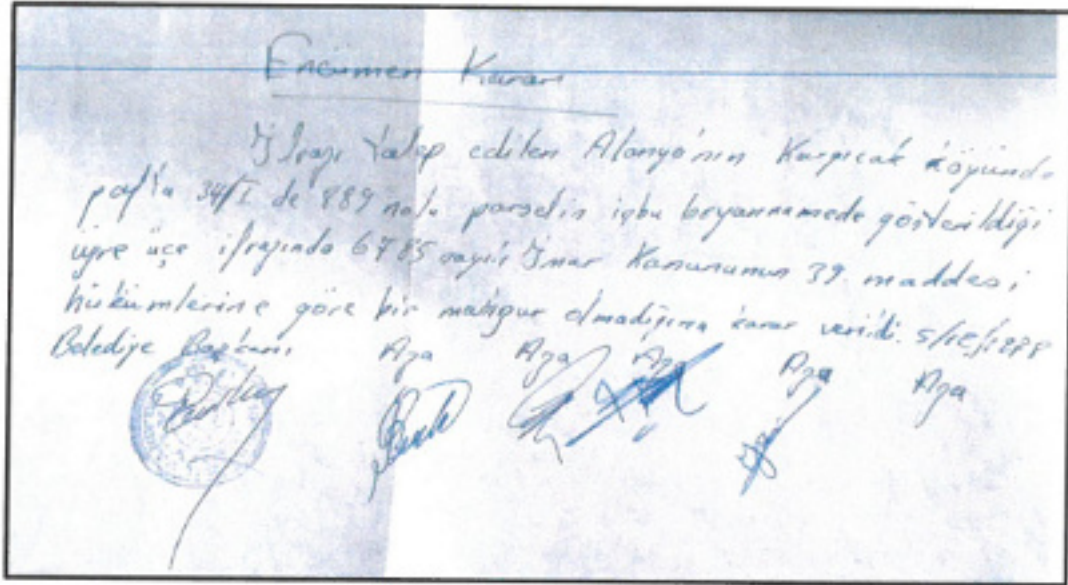 Encümen Kararı
İfrazı talep edilen Alanya'nın Kargıcak köyünde
pafta 34/I de 889 nolu parselin işbu beyannamede gösterildiği
üzre üçe ifrazında 6785 sayılı İmar Kanununun 39. maddesi
hükümlerine göre bir mahzur olmadığına karar verildi.
Belediye Başkanı Aza Aza Aza Aza Aza